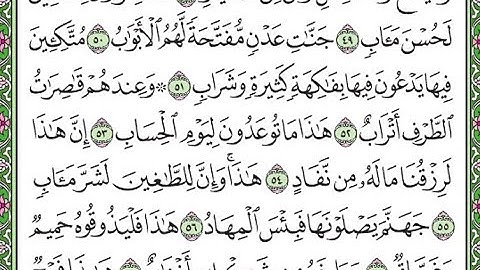 لَحُسْنَ مَـَٔابٍ ٤٩ جَنَّٰتِ عَدْنٍ مُّفَتَّحَةً لَّهُمُ ٱلْأَبْوَٰبُ ٥٠ مُتَّكِـِٔينَ
فِيهَا يَدْعُونَ فِيهَا بِفَٰكِهَةٍ كَثِيرَةٍ وَشَرَابٍ ٥١ ۞ وَعِندَهُمْ قَٰصِرَٰتُ
ٱلطَّرْفِ أَتْرَابٌ ٥٢ هَٰذَا مَا تُوعَدُونَ لِيَوْمِ ٱلْحِسَابِ ٥٣ إِنَّ هَٰذَا
لَرِزْقُنَا مَا لَهُۥ مِن نَّفَادٍ ٥٤ هَٰذَا ۚ وَإِنَّ لِلطَّٰغِينَ لَشَرَّ مَـَٔابٍ ٥٥
جَهَنَّمَ يَصْلَوْنَهَا فَبِئْسَ ٱلْمِهَادُ ٥٦ هَٰذَا فَلْيَذُوقُوهُ حَمِيمٌ